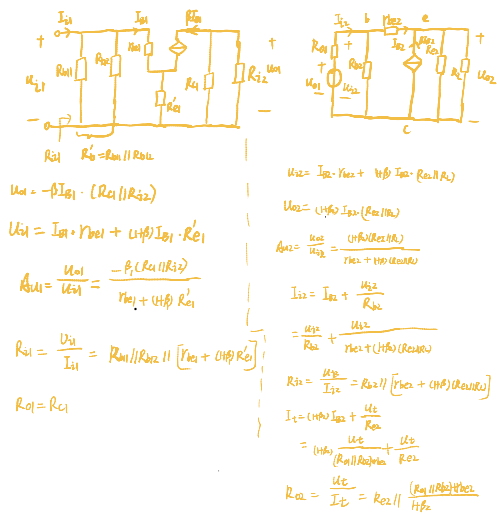 I_i1 I_B1 βI_B1
+ +
R_b11 R_b12 r_be1 R_c1 R_i2 u_o1
u_i1 R'_e1
− −
R_i1 R'_b = R_b11//R_b12
u_o1 = -βI_B1 · (R_c1//R_i2)
u_i1 = I_B1 · r_be1 + (1+β) I_B1 · R'_e1
A_u1 = u_o1/u_i1 = -β_1(R_c1//R_i2) / r_be1 + (1+β) R'_e1
R_i1 = u_i1/I_i1 = R_b11//R_b12 // [r_be1 + (1+β) R'_e1]
R_o1 = R_c1
I_i2 b r_be2 e
+ I_B2 +
R_o1 R_b2 R_e2 R_L u_o2
+
u_o1 u_i2
− −
c
u_i2 = I_B2 · r_be2 + (1+β) I_B2 · R_e2//R_L
u_o2 = (1+β) I_B2 · (R_e2//R_L)
A_u2 = u_o2/u_i2 = (1+β)(R_e2//R_L) / r_be2 + (1+β)(R_e2//R_L)
I_i2 = I_B2 + u_i2/R_b2
= u_i2/R_b2 + u_i2 / r_be2 + (1+β)(R_e2//R_L)
R_i2 = u_i2/I_i2 = R_b2 // [r_be2 + (1+β)(R_e2//R_L)]
I_t = (1+β) I_B2 + u_t/R_e2
= (1+β) u_t / (R_o1//R_b2)+r_be2 + u_t/R_e2
R_o2 = u_t/I_t = R_e2 // (R_o1//R_b2)+r_be2 / 1+β_2